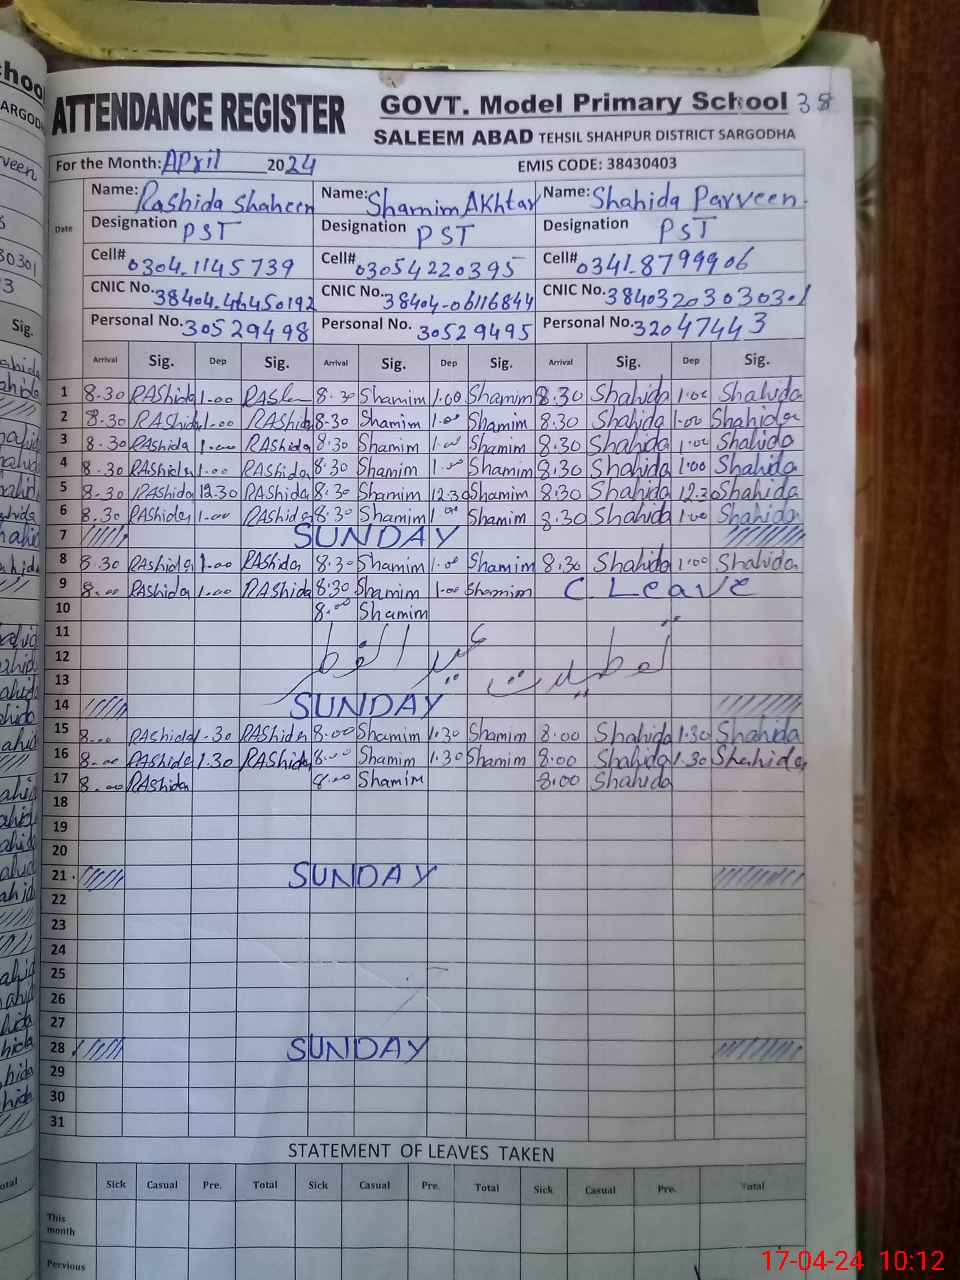 ATTENDANCE REGISTER GOVT. Model Primary School 38
SALEEM ABAD TEHSIL SHAHPUR DISTRICT SARGODHA
For the Month: April 2024 EMIS CODE: 38430403
Date Name: Rashida Shaheen Name: Shamim AKhtar Name: Shahida Parveen
Designation PST Designation PST Designation PST
Cell# 0304.1145739 Cell# 03054220395 Cell# 0341.8799906
CNIC No. 38404.46450192 CNIC No. 38404-06116844 CNIC No. 384032030303.1
Personal No. 30529498 Personal No. 30529495 Personal No. 32047443
Arrival Sig. Dep Sig. Arrival Sig. Dep Sig. Arrival Sig. Dep Sig.
1 8.30 RAShida 1.00 8.30 Shamim 1.00 Shamim 8.30 Shahida 1.00 Shahida
2 8.30 RAShida 1.00 RAShida 8.30 Shamim 1.00 Shamim 8.30 Shahida 1.00 Shahida
3 8.30 RAShida 1.00 RAShida 8.30 Shamim 1.00 Shamim 8.30 Shahida 1.00 Shahida
4 8.30 RAShida 1.00 RAShida 8.30 Shamim 1.00 Shamim 8.30 Shahida 1.00 Shahida
5 8.30 RAShida 12.30 RAShida 8.30 Shamim 12.30 Shamim 8.30 Shahida 12.30 Shahida
6 8.30 RAShida 1.00 RAShida 8.30 Shamim 1.00 Shamim 8.30 Shahida 1.00 Shahida
7 SUNDAY
8 8.30 RAShida 1.00 RAShida 8.30 Shamim 1.00 Shamim 8.30 Shahida 1.00 Shahida
9 8.00 RAShida 1.00 RAShida 8.30 Shamim 1.00 Shamim C. Leave
10 8.00 Shamim
11
12 تعطیلات عید الفطر
13
14 SUNDAY
15 8.00 RAShida 1.30 RAShida 8.00 Shamim 1.30 Shamim 8.00 Shahida 1.30 Shahida
16 8.00 RAShida 1.30 RAShida 8.00 Shamim 1.30 Shamim 8.00 Shahida 1.30 Shahida
17 8.00 RAShida 8.00 Shamim 8.00 Shahida
18
19
20
21 SUNDAY
22
23
24
25
26
27
28 SUNDAY
29
30
31
STATEMENT OF LEAVES TAKEN
Sick Casual Pre. Total Sick Casual Pre. Total Sick Casual Pre. Total
This month
Pervious
17-04-24 10:12